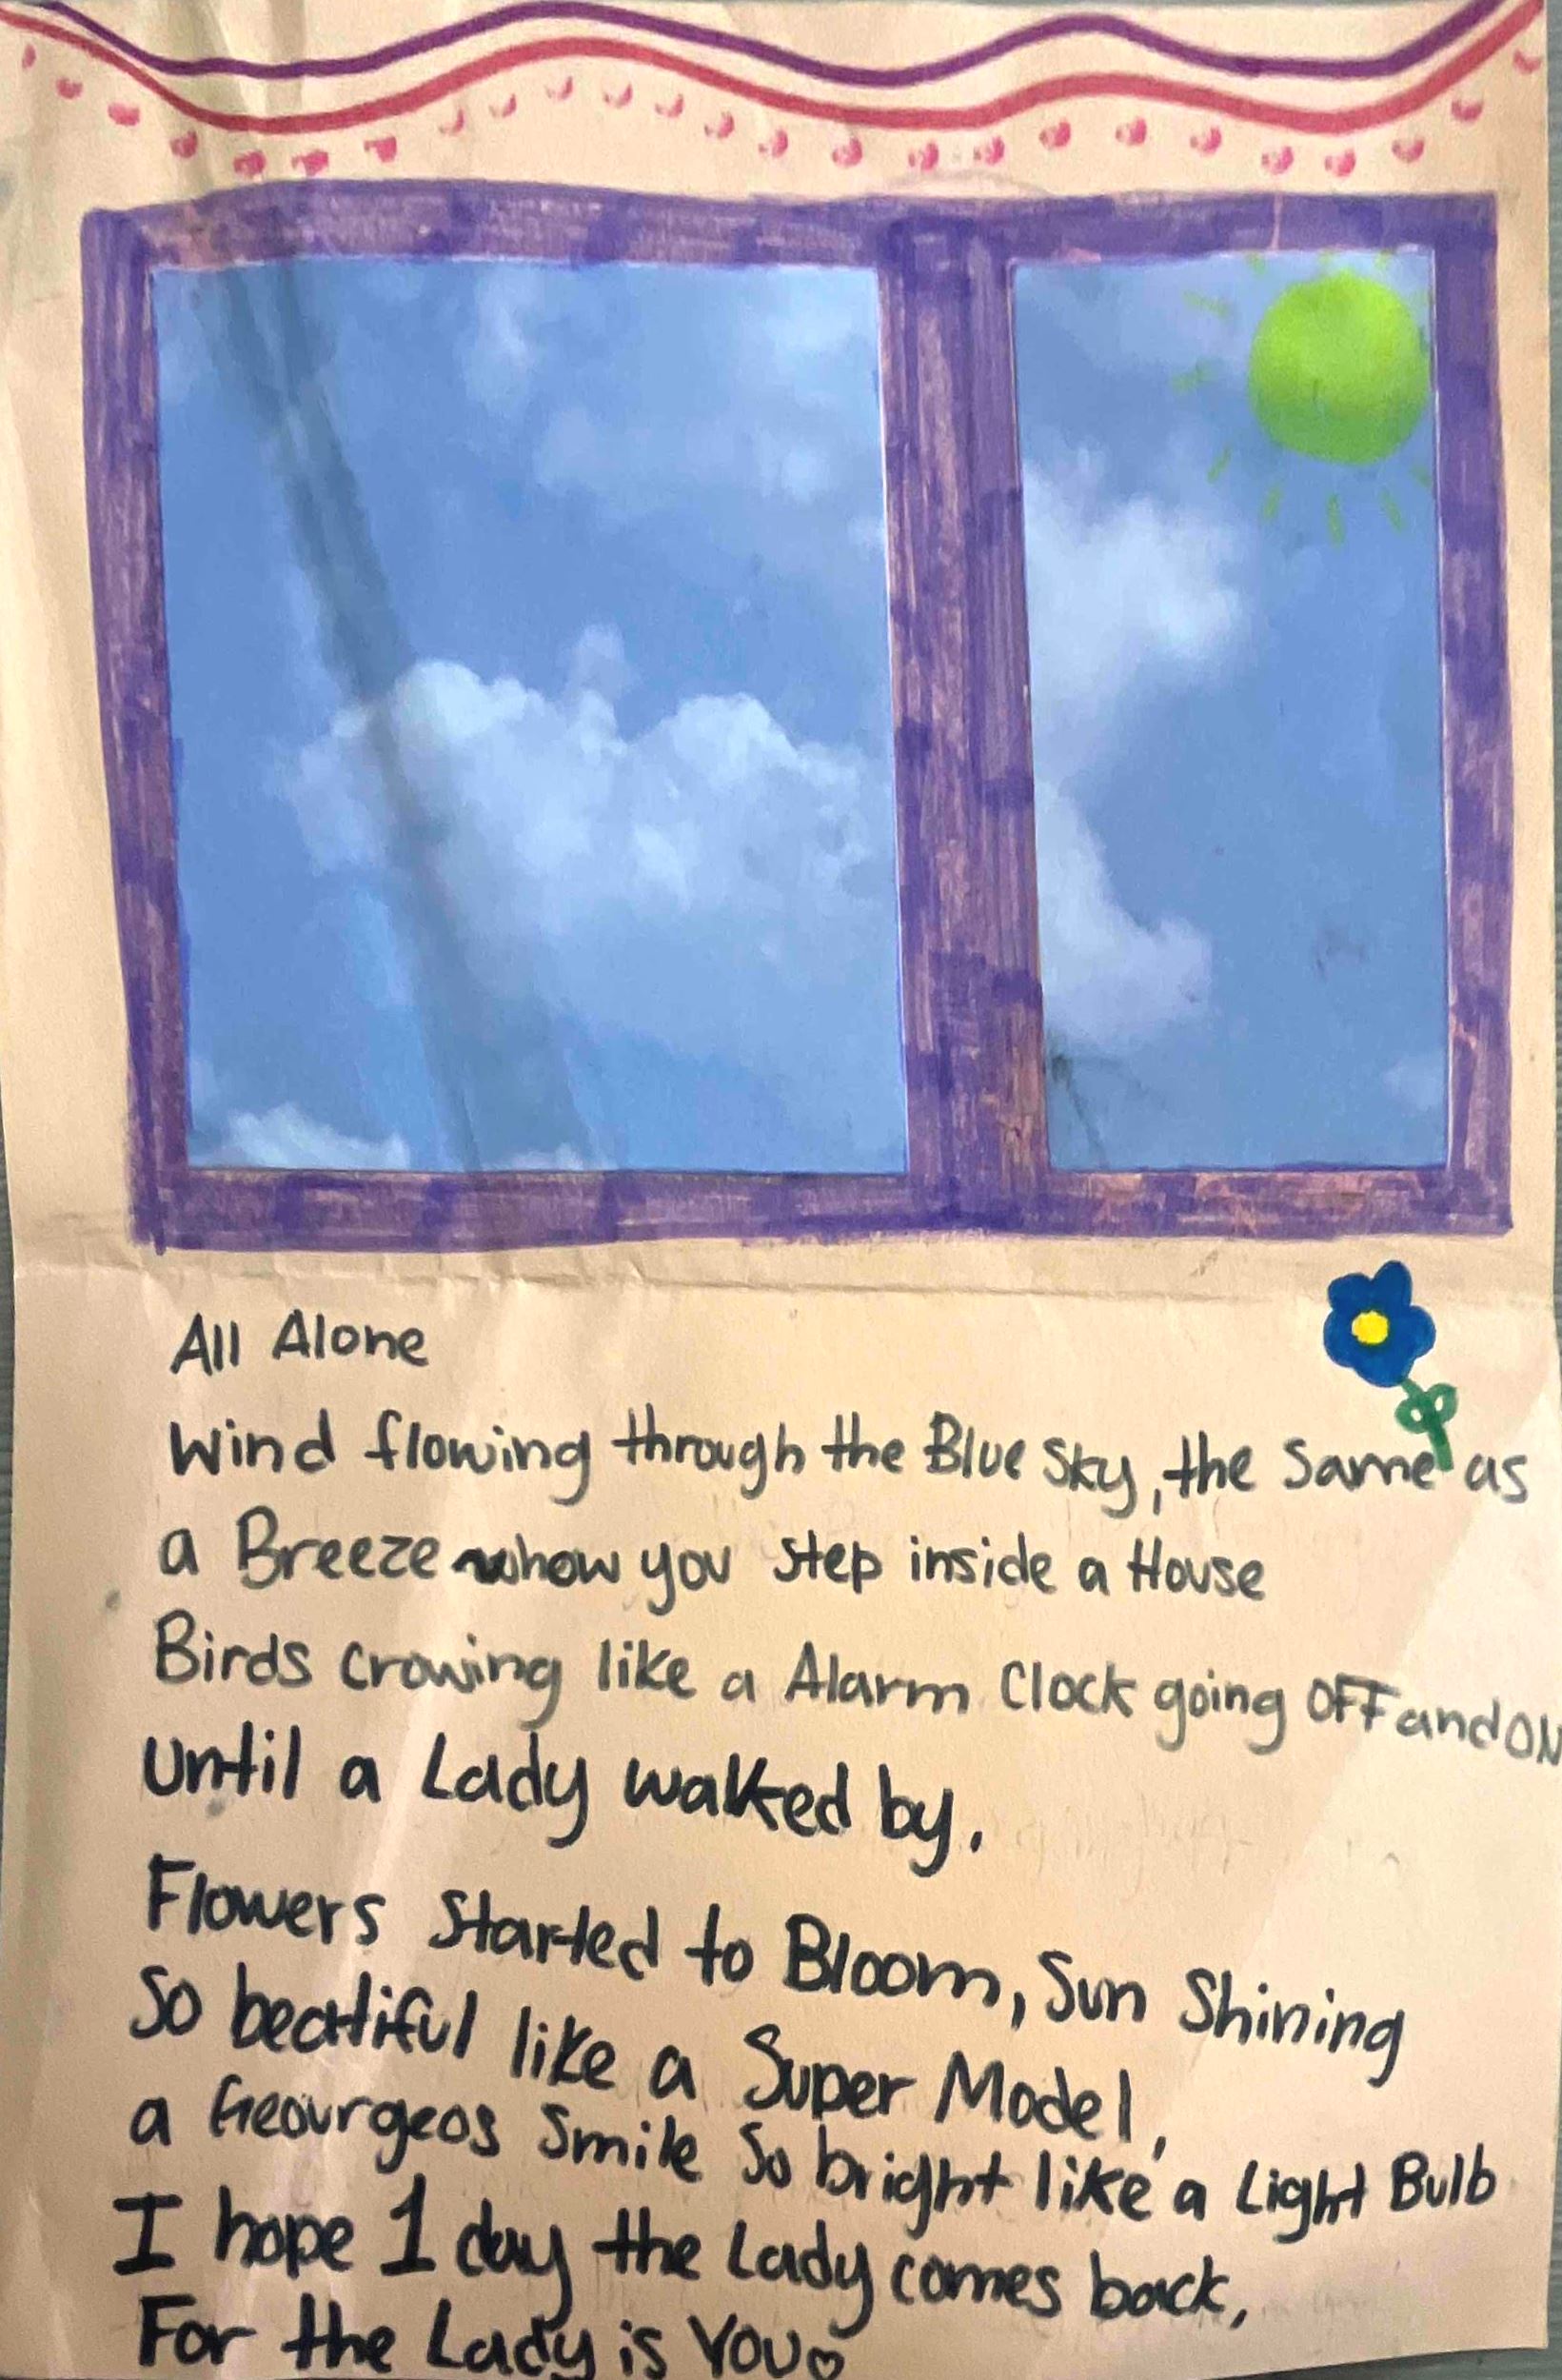 All Alone
Wind flowing through the Blue Sky, the same as
a Breeze whow you step inside a House
Birds crowing like a Alarm Clock going OFF and ON
until a Lady walked by.
Flowers started to Bloom, Sun Shining
So beatiful like a Super Model,
a Geourgeos Smile So bright like a Light Bulb
I hope 1 day the Lady comes back,
For the Lady is You♡